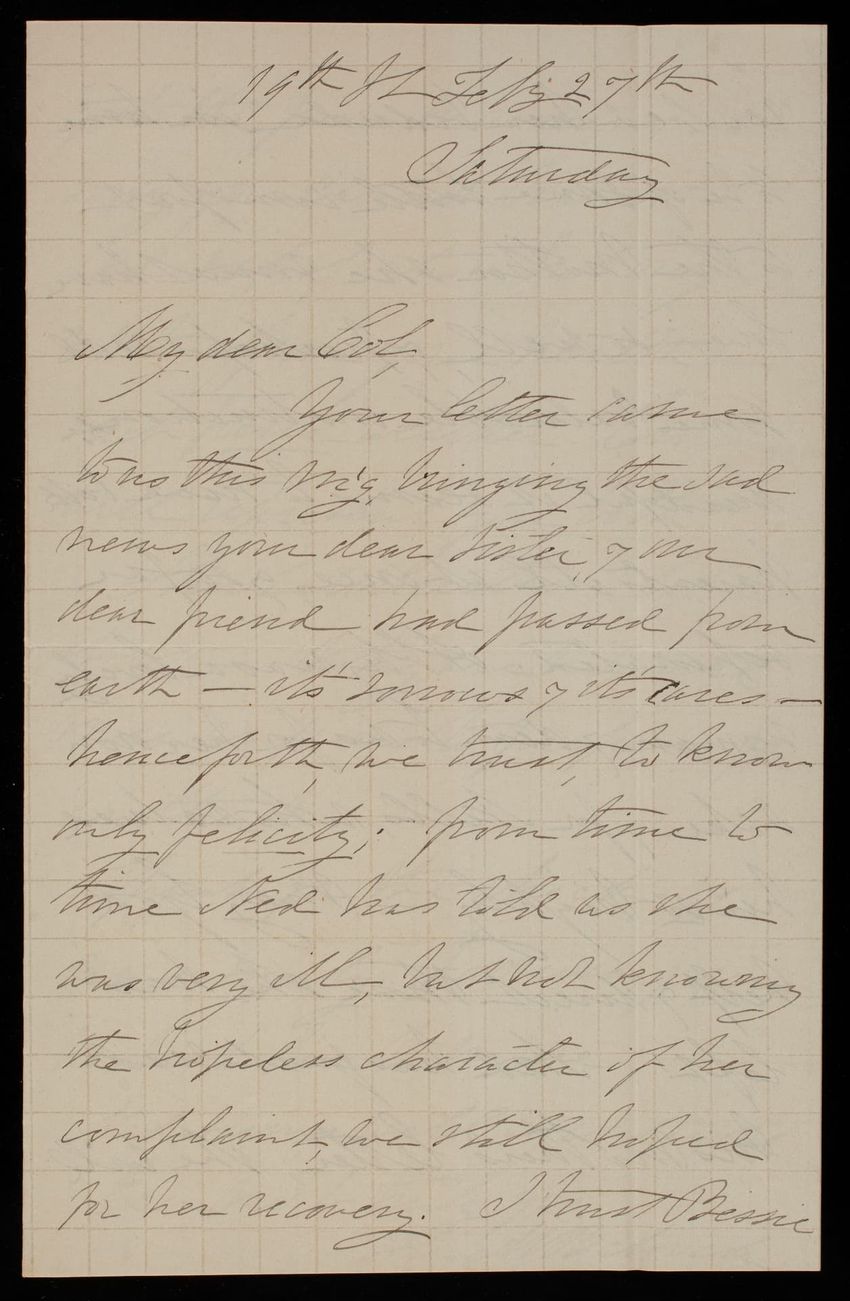 19th St Feby 27th
Saturday
My dear Col,
Your letter came
to us this m'g, bringing the sad
news your dear sister, & our
dear friend had passed from
earth — its' sorrows & its' cares —
henceforth, we trust, to know
only felicity; from time to
time Ned has told us she
was very ill, but not knowing
the hopeless character of her
complaint, we still hoped
for her recovery. I trust Bessie